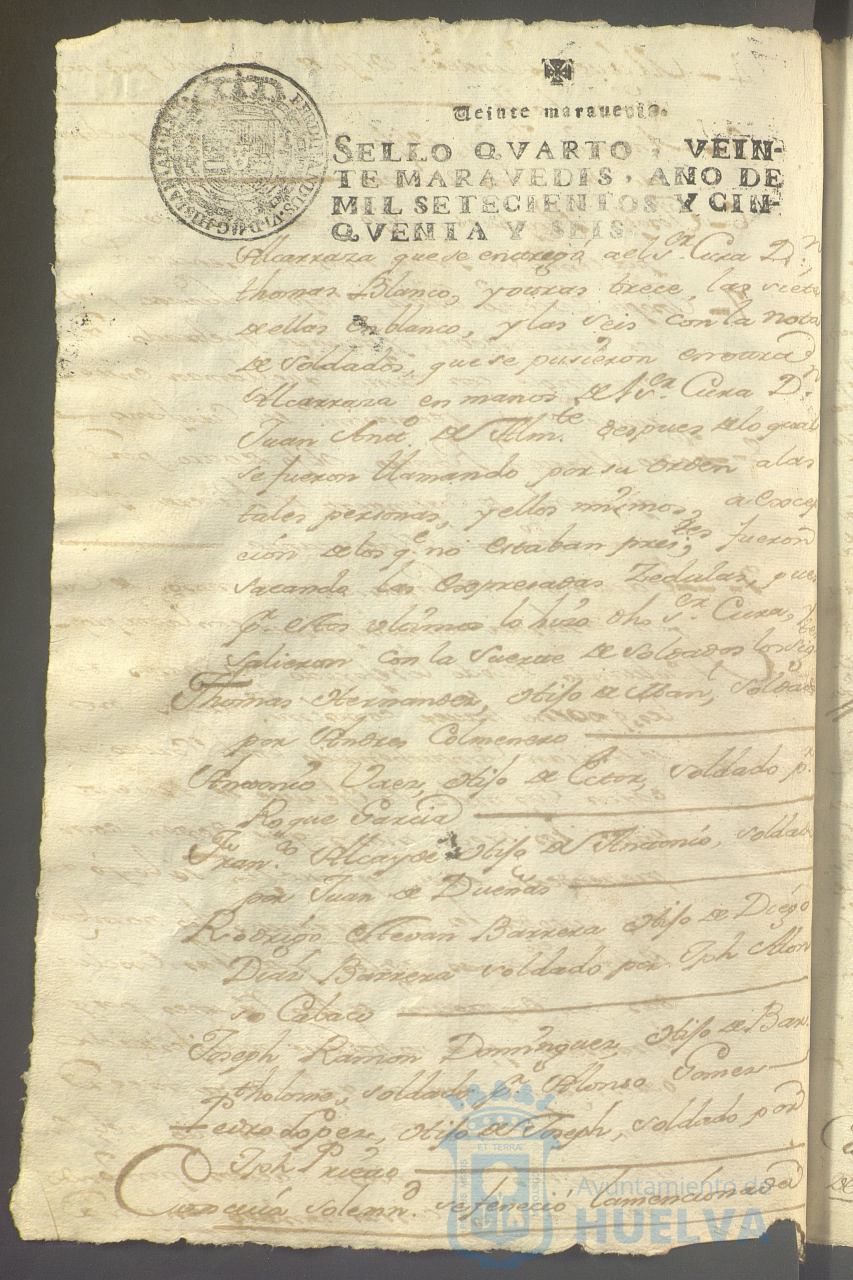 Veinte maravedis.
SELLO QVARTO, VEIN-
TE MARAVEDIS, AÑO DE
MIL SETECIENTOS Y CIN-
QVENTA Y SEIS.
FERDINANDUS VI D G HISPANIAR
Alcarraza que se entregò a el Sr. Cura Dn
thomas Blanco, y otras trece, las siete
de ellas en blanco, y las seis con la nota
de Soldados, que se pusieron en otra
Alcarraza en manos de el Sr. Cura Dn
Juan Anto. de Alm.te despues de lo qual
se fueron llamando por su orden a las
tales personas, y ellos mismos, a excep
cion de los qe. no estaban pres.tes fueron
sacando las expresadas Zedulas, pues
pr. estos ultimos lo hizo dho Sr. Cura, y
salieron con la suerte de Soldados los sig.tes
Thomas Hernandez, Hijo de Man.l, Soldado
por Andres Colmenero
Antonio Vaez, Hijo de Ector, soldado pr.
Roque Garcia
Fran.co Alcayde Hijo de Antonio, soldado
por Juan de Dueñas
Rodrigo Stevan Barrera Hijo de Diego
Diaz Barrera soldado por Jph Alon
so Cabaco
Joseph Ramon Dominguez, Hijo de Bar
tholome, soldado pr. Alonso Gomez
Pedro Lopez, Hijo de Joseph, soldado por
Jph Priego
Con cuia solemn.d se feneciò la mencionada
ET TERRAE
Ayuntamiento de
HUELVA